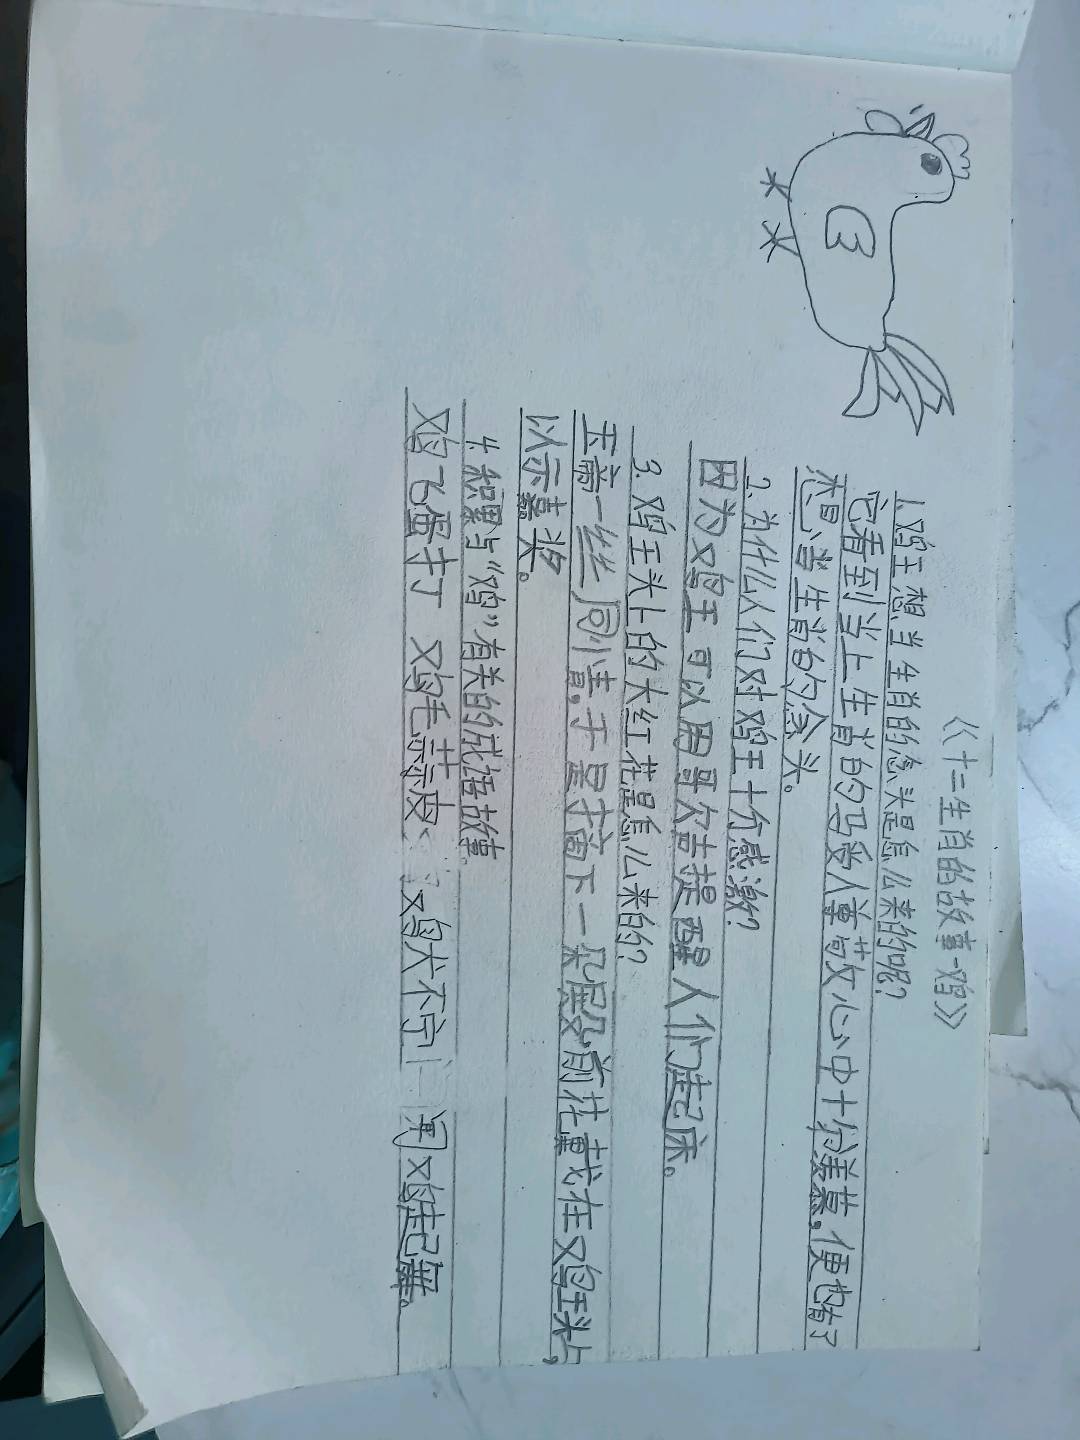 《十二生肖的故事-鸡》
1.鸡王想当生肖的念头是怎么来的呢?
它看到当上生肖的马受人尊敬心中十分羡慕,便也有了
想当生肖的念头。
2.为什么人们对鸡王十分感激?
因为鸡王可以用哥尔吉提醒人们起床。
3.鸡王头上的大红花是怎么来的?
玉帝一丝同情,于是摘下一朵殿前花戴在鸡王头上,
以示嘉奖。
4.积累与“鸡”有关的成语故事。
鸡飞蛋打 鸡毛蒜皮 鸡犬不宁 闻鸡起舞。